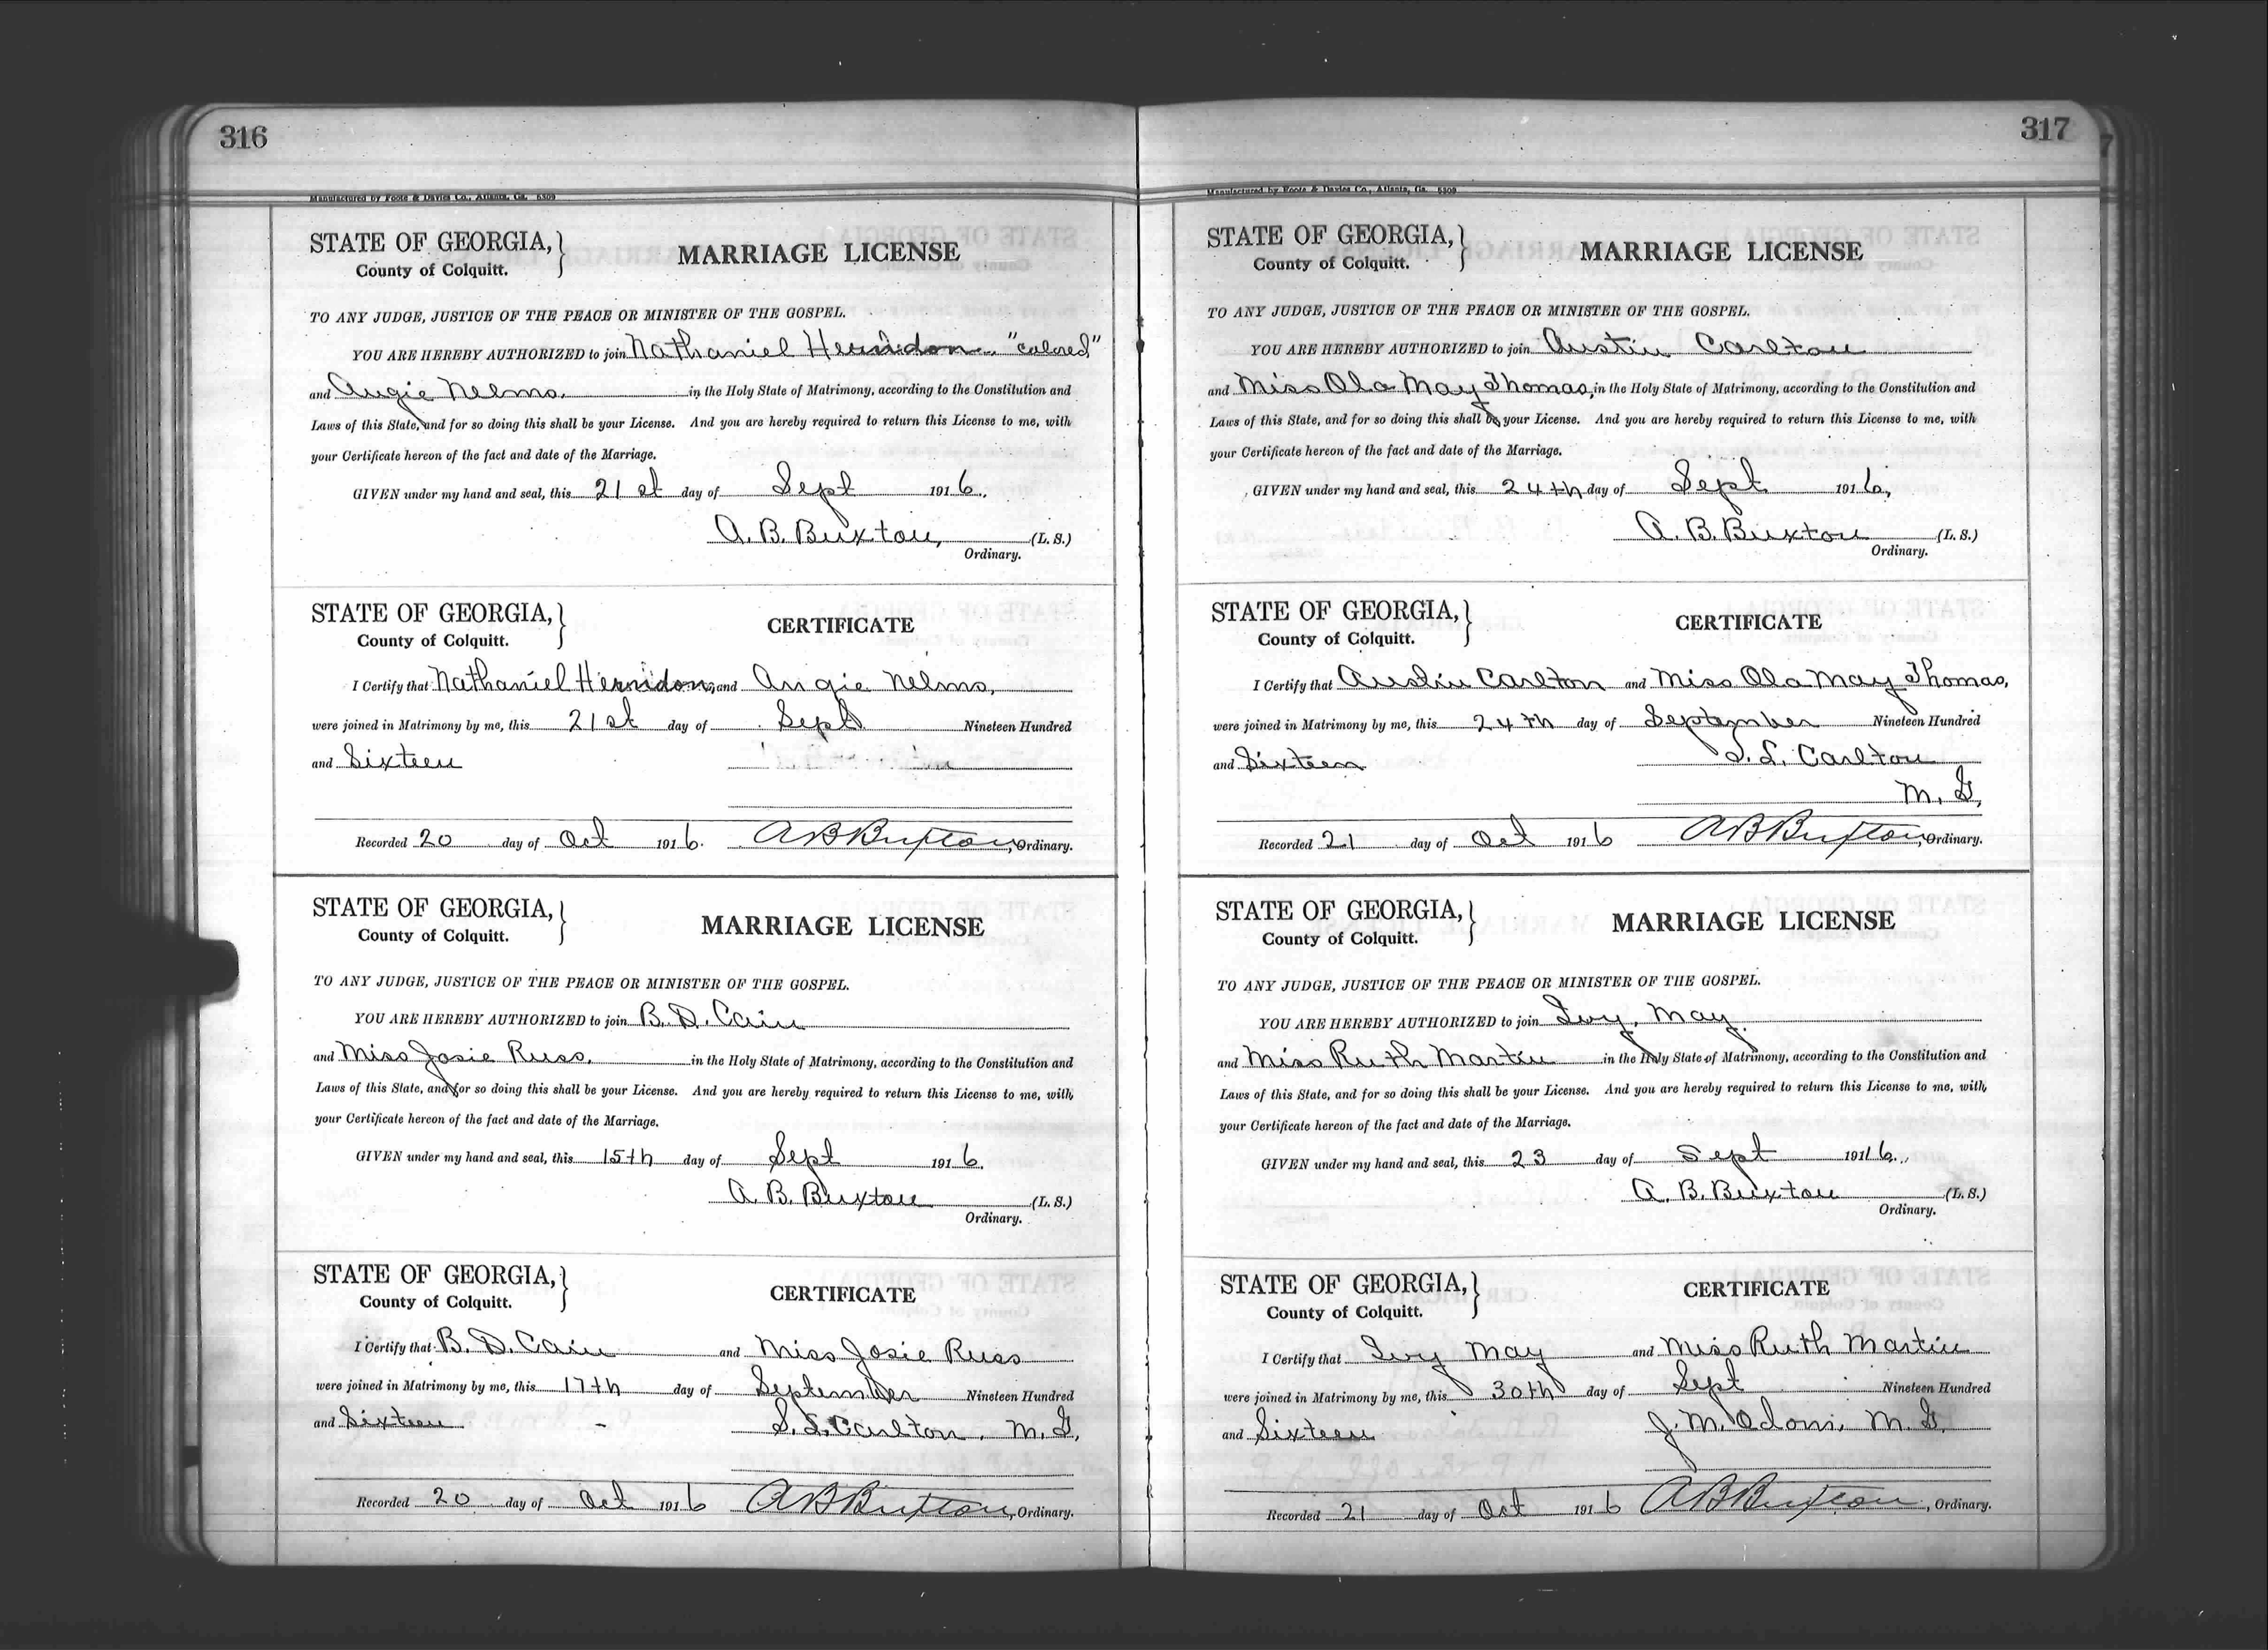 316
Manufactured by Foote & Davies Co., Atlanta, Ga. 5309
STATE OF GEORGIA,
County of Colquitt.
MARRIAGE LICENSE
TO ANY JUDGE, JUSTICE OF THE PEACE OR MINISTER OF THE GOSPEL.
YOU ARE HEREBY AUTHORIZED to join Nathaniel Herndon "colored"
and Angie Nelms. in the Holy State of Matrimony, according to the Constitution and
Laws of this State, and for so doing this shall be your License. And you are hereby required to return this License to me, with
your Certificate hereon of the fact and date of the Marriage.
GIVEN under my hand and seal, this 21st day of Sept 1916.
A. B. Buxton, (L. S.)
Ordinary.
STATE OF GEORGIA,
County of Colquitt.
CERTIFICATE
I Certify that Nathaniel Herndon, and Angie Nelms,
were joined in Matrimony by me, this 21st day of Sept Nineteen Hundred
and Sixteen
Recorded 20 day of Oct 1916. A B Buxton, Ordinary.
STATE OF GEORGIA,
County of Colquitt.
MARRIAGE LICENSE
TO ANY JUDGE, JUSTICE OF THE PEACE OR MINISTER OF THE GOSPEL.
YOU ARE HEREBY AUTHORIZED to join B. D. Cain
and Miss Josie Russ. in the Holy State of Matrimony, according to the Constitution and
Laws of this State, and for so doing this shall be your License. And you are hereby required to return this License to me, with
your Certificate hereon of the fact and date of the Marriage.
GIVEN under my hand and seal, this 15th day of Sept 1916.
A. B. Buxton (L. S.)
Ordinary.
STATE OF GEORGIA,
County of Colquitt.
CERTIFICATE
I Certify that B. D. Cain and Miss Josie Russ
were joined in Matrimony by me, this 17th day of September Nineteen Hundred
and Sixteen S. L. Carlton. M. G,
Recorded 20 day of Oct 1916 A B Buxton, Ordinary.
317
Manufactured by Foote & Davies Co., Atlanta, Ga. 5309
STATE OF GEORGIA,
County of Colquitt.
MARRIAGE LICENSE
TO ANY JUDGE, JUSTICE OF THE PEACE OR MINISTER OF THE GOSPEL.
YOU ARE HEREBY AUTHORIZED to join Austin Carlton
and Miss Ola May Thomas, in the Holy State of Matrimony, according to the Constitution and
Laws of this State, and for so doing this shall be your License. And you are hereby required to return this License to me, with
your Certificate hereon of the fact and date of the Marriage.
GIVEN under my hand and seal, this 24th day of Sept 1916,
A. B. Buxton (L. S.)
Ordinary.
STATE OF GEORGIA,
County of Colquitt.
CERTIFICATE
I Certify that Austin Carlton and Miss Ola May Thomas,
were joined in Matrimony by me, this 24th day of September Nineteen Hundred
and Sixteen S. L. Carlton
M. G,
Recorded 21 day of Oct 1916 A B Buxton, Ordinary.
STATE OF GEORGIA,
County of Colquitt.
MARRIAGE LICENSE
TO ANY JUDGE, JUSTICE OF THE PEACE OR MINISTER OF THE GOSPEL.
YOU ARE HEREBY AUTHORIZED to join Ivy, May
and Miss Ruth Martin in the Holy State of Matrimony, according to the Constitution and
Laws of this State, and for so doing this shall be your License. And you are hereby required to return this License to me, with
your Certificate hereon of the fact and date of the Marriage.
GIVEN under my hand and seal, this 23 day of Sept 1916.
A. B. Buxton (L. S.)
Ordinary.
STATE OF GEORGIA,
County of Colquitt.
CERTIFICATE
I Certify that Ivy May and Miss Ruth Martin
were joined in Matrimony by me, this 30th day of Sept Nineteen Hundred
and Sixteen J. M. Odom, M. G.
Recorded 21 day of Oct 1916 A B Buxton, Ordinary.